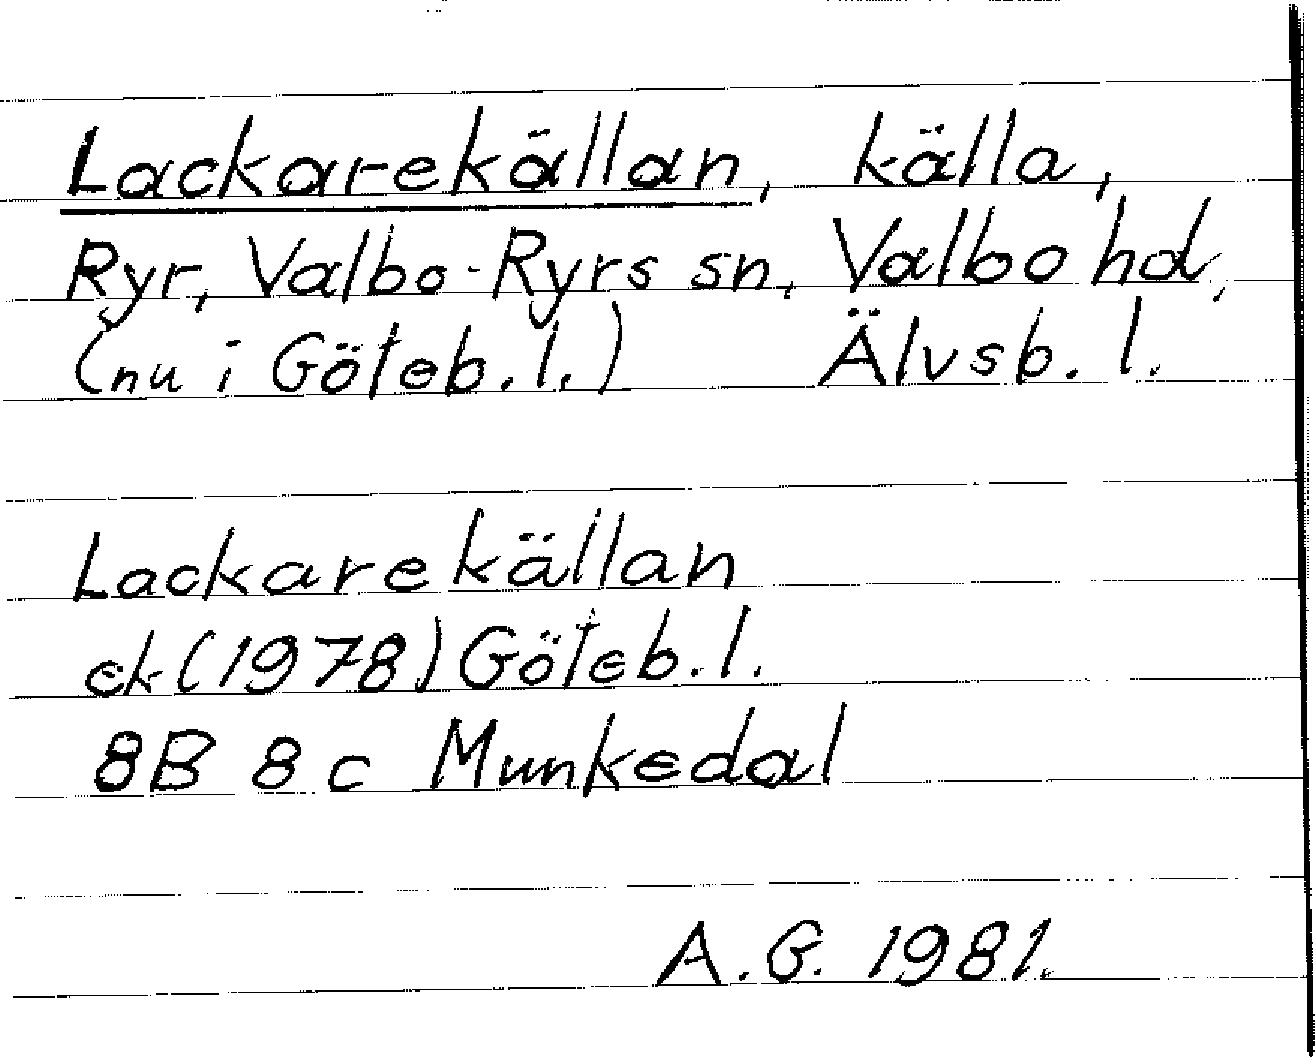 Lackarekällan, källa,
Ryr, Valbo-Ryrs sn, Valbo hd,
(nu i Göteb. l.) Älvsb. l.
Lackarekällan
ek (1978) Göteb. l.
8B 8c Munkedal
A.G. 1981.